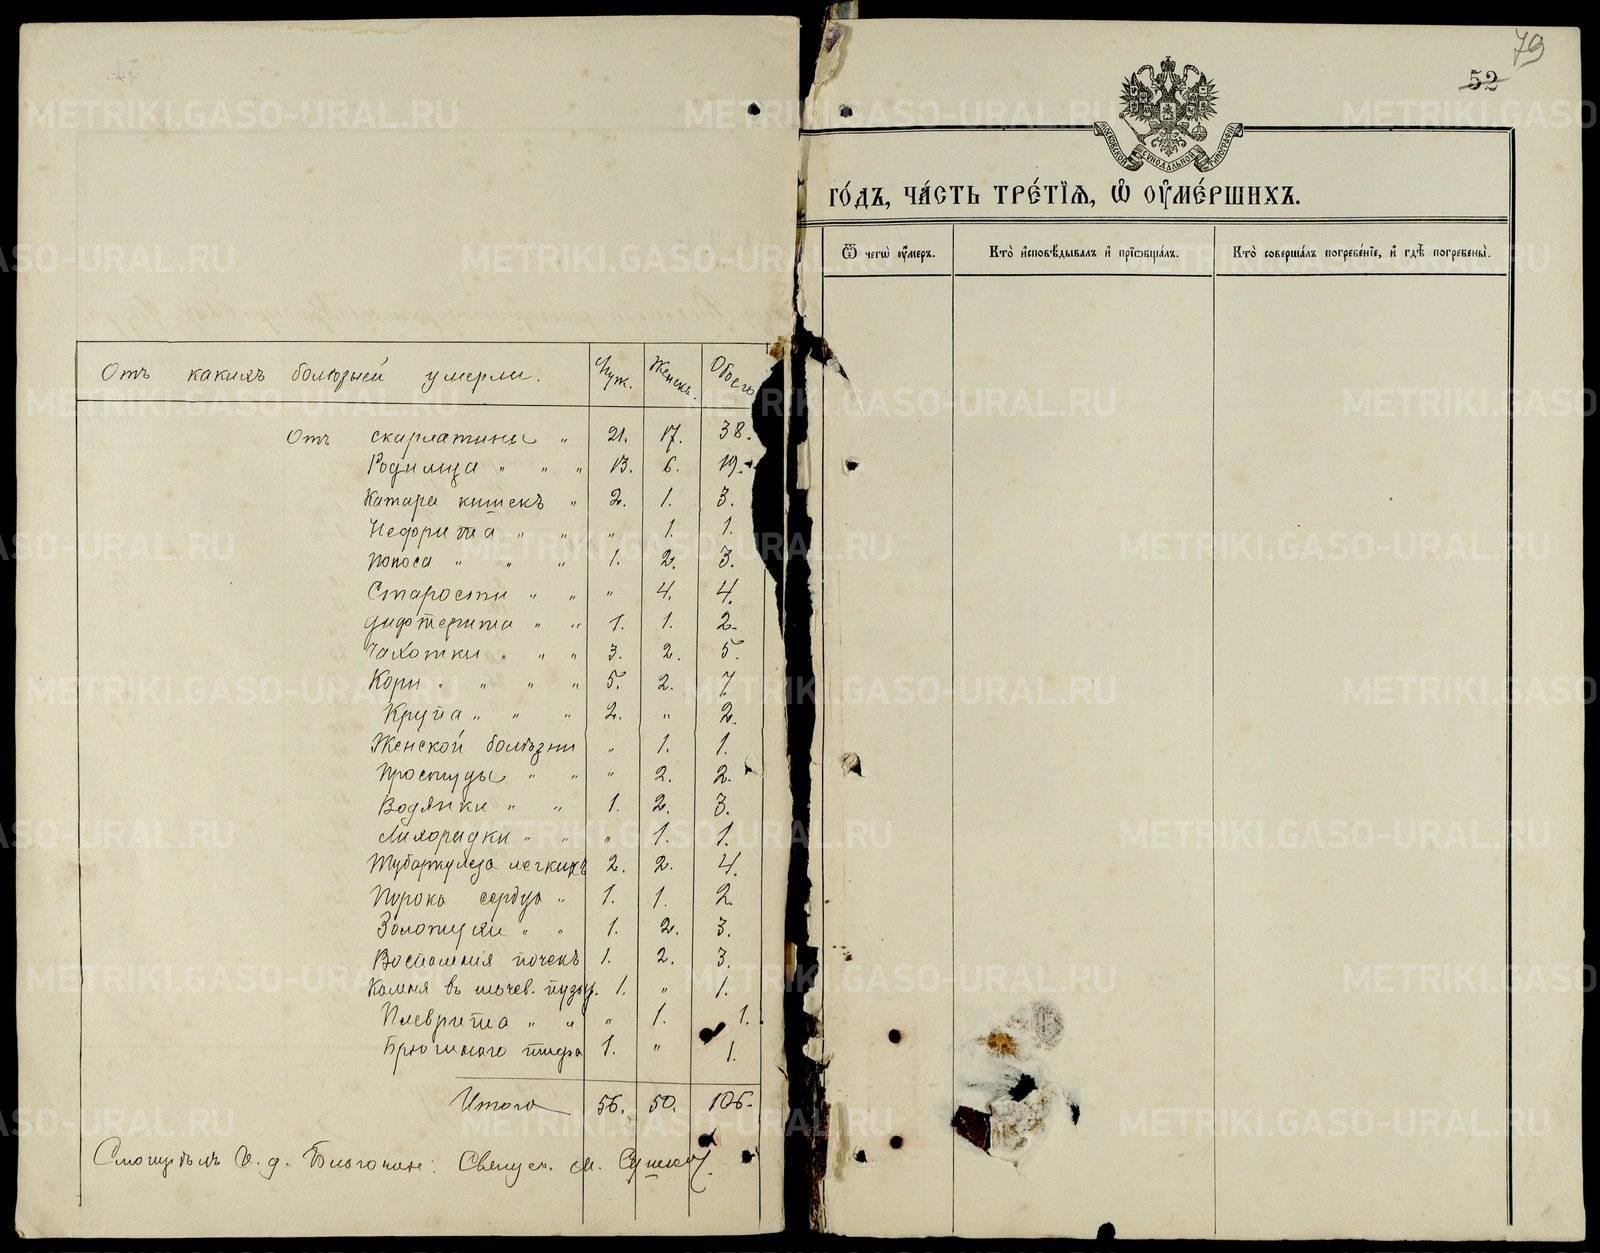 Отъ какихъ болѣзней умерли. Муж. Женск. Обоего
Отъ скарлатины " 21. 17. 38.
Родимца " " " 13. 6. 19.
Катара кишекъ " 2. 1. 3.
Нефрита " " " 1. 1.
Поноса " " " 1. 2. 3.
Старости " " " 4. 4.
Дифтерита " " 1. 1. 2.
Чахотки " " " 3. 2. 5.
Кори " " " " 5. 2. 7.
Крупа " " " 2. " 2.
Женской болѣзни " 1. 1.
Простуды " " " 2. 2.
Водянки " " 1. 2. 3.
Лихорадки " " " 1. 1.
Туберкулеза легкихъ 2. 2. 4.
Порока сердца " 1. 1. 2.
Золотухи " " 1. 2. 3.
Воспаленія почекъ 1. 2. 3.
Камня въ мочев. пузыр. 1. " 1.
Плеврита " " " 1. 1.
Брюшного тифа 1. " 1.
Итого 56. 50. 106.
Смотрѣлъ И. д. Благочин: Священ. М. Сушков
79
52
МОСКОВСКОЙ СѴНОДАЛЬНОЙ ТИПОГРАФІИ
ГО́ДЪ, ЧА́СТЬ ТРЕ́ТІѦ, Ѡ҆ ОУ҆МЕ́РШИХЪ.
Ѿ чегѡ̀ оу҆́меръ. Кто̀ и҆сповѣ́дывалъ и҆ прїѡбща́лъ. Кто̀ соверша́лъ погребе́нїе, и҆ гдѣ̀ погребены̀.
METRIKI.GASO-URAL.RU